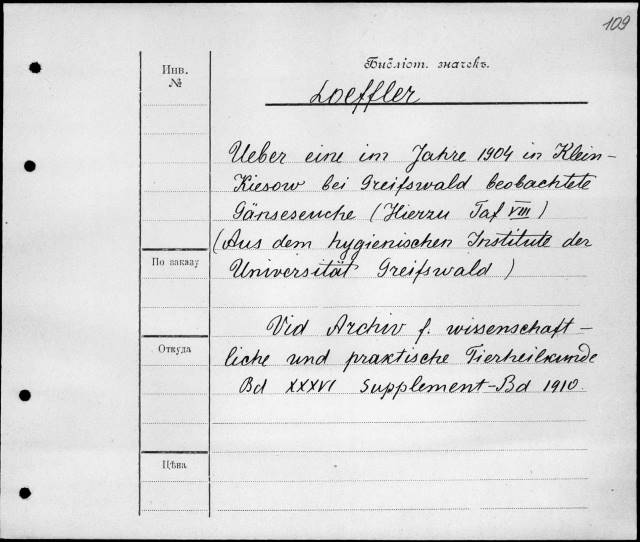 109
Инв.
№
Библіот. значекъ.
Loeffler
Ueber eine im Jahre 1904 in Klein-
Kiesow bei Greifswald beobachtete
Gänseseuche (Hierzu Taf VIII)
(Aus dem hygienischen Institute der
Universität Greifswald)
По заказу
Vid Archiv f. wissenschaft-
liche und praktische Tierheilkunde
Bd XXXVI Supplement-Bd 1910.
Откуда
Цѣна